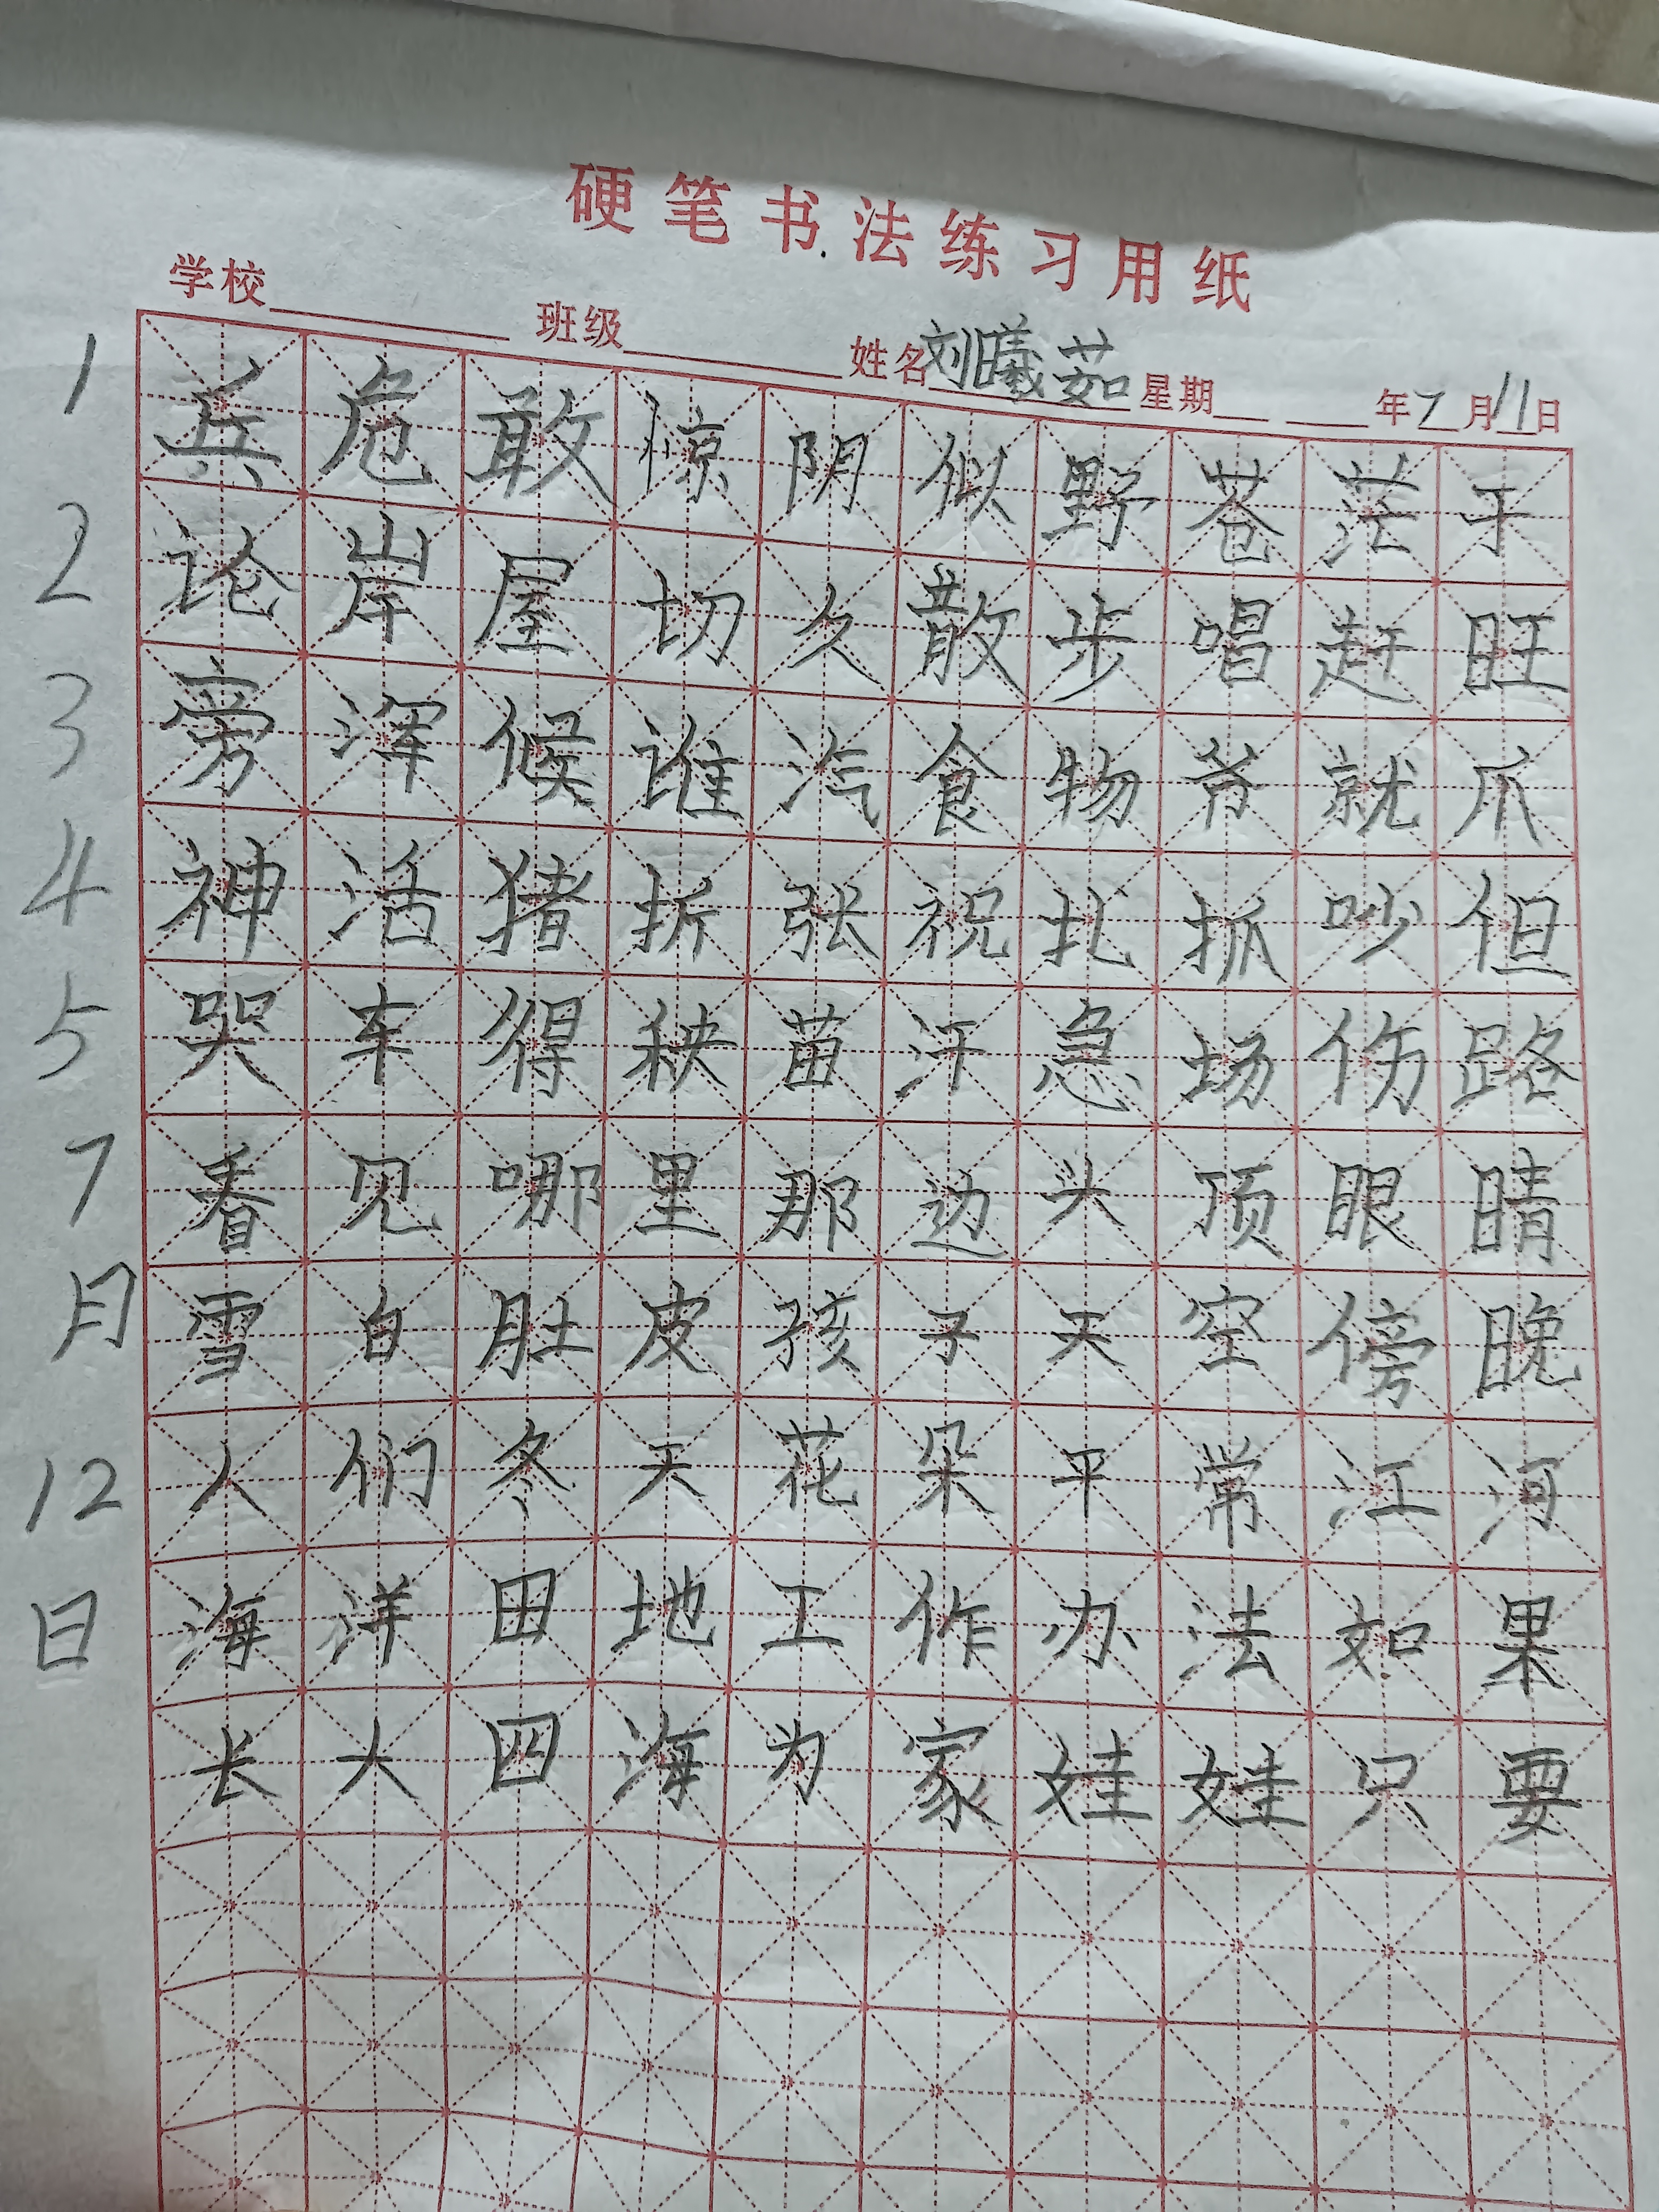 硬笔书法练习用纸
学校 班级 姓名 刘曦茹 星期 年7月11日
1 兵危敢惊阴似野苍茫于
2 论岸屋切久散步唱赶旺
3 旁浑候谁汽食物爷就爪
4 神活猪折张祝扎抓吵但
5 哭车得秧苗汗急场伤路
7 看见哪里那边头顶眼睛
月 雪白肚皮孩子天空傍晚
12 人们冬天花朵平常江河
日 海洋田地工作办法如果
长大四海为家娃娃只要